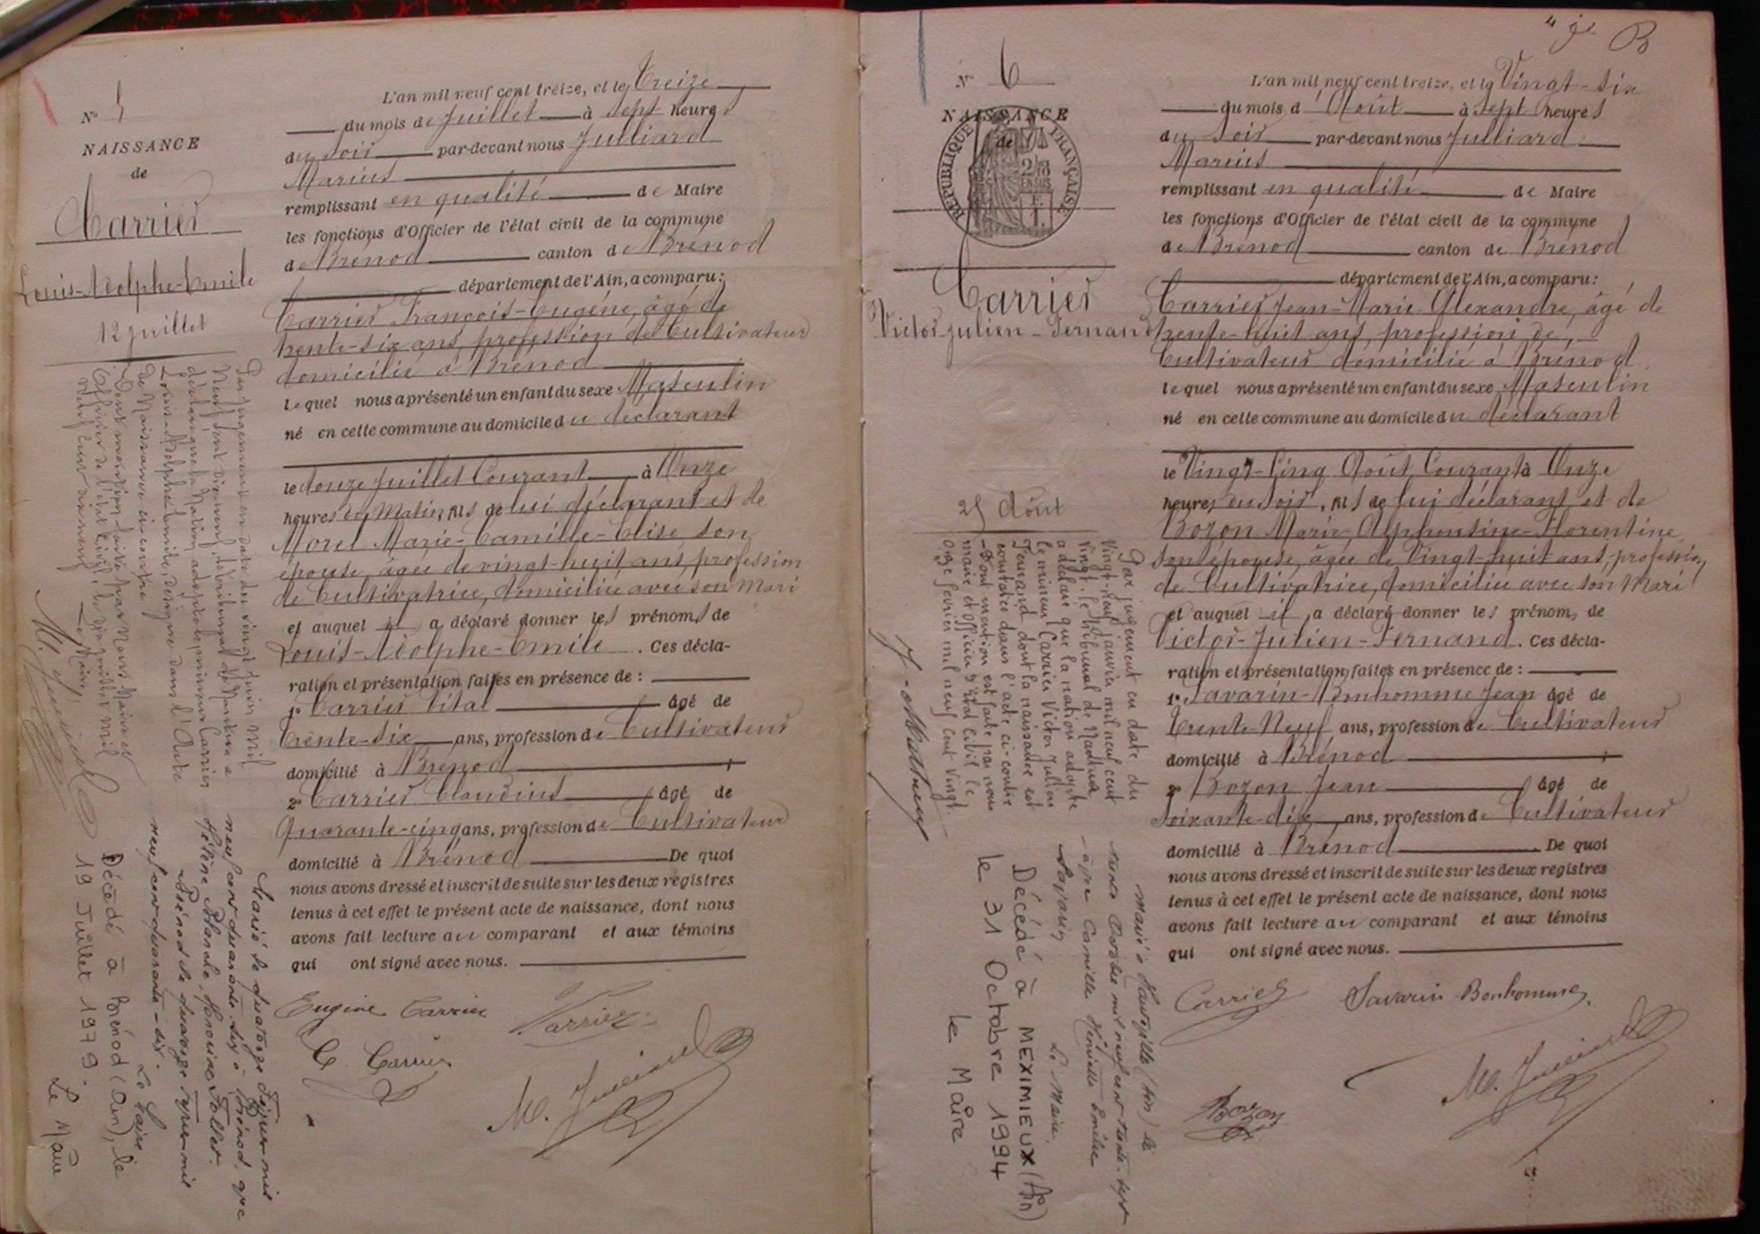 N° 5
NAISSANCE
de
Carrier
Louis-Adolphe-Emile
12 Juillet
L'an mil neuf cent treize, et le Treize
du mois de Juillet à sept heures
du soir par-devant nous Julliard
Marius
remplissant en qualité de Maire
les fonctions d'Officier de l'état civil de la commune
de Brénod canton de Brénod
département de l'Ain, a comparu:
Carrier François-Eugène, âgé de
trente-six ans, profession de Cultivateur
domicilié à Brénod
lequel nous a présenté un enfant du sexe Masculin
né en cette commune au domicile du déclarant
le douze Juillet Courant à Onze
heures du Matin, fils de lui déclarant et de
Morel Marie-Camille-Elise son
épouse, âgée de vingt-huit ans, profession
de Cultivatrice, domiciliée avec son Mari
et auquel il a déclaré donner les prénoms de
Louis-Adolphe-Emile. Ces décla-
ration et présentation faites en présence de :
1° Carrier Vital âgé de
trente-six ans, profession de Cultivateur
domicilié à Brénod
2° Carrier Claudius âgé de
Quarante-cinq ans, profession de Cultivateur
domicilié à Brénod De quoi
nous avons dressé et inscrit de suite sur les deux registres
tenus à cet effet le présent acte de naissance, dont nous
avons fait lecture au comparant et aux témoins
qui ont signé avec nous.
Eugène Carrier Carrier
C Carrier
M. Julliard
Par jugement en date du vingt juin Mil
Neuf cent dix neuf, le tribunal de Nantua a
déclaré que la Nation adopte le mineur Carrier
Louis-Adolphe-Emile, désigné dans l'Acte
de Naissance ci-contre
Dont mention faite par Nous, Maire et
Officier de l'état civil, le
Le Maire,
M. Julliard
Marié le quatorze Février mil
neuf cent quarante six à Brénod, avec
Hélène Blanche Follet.
Brénod le quatorze Février mil
neuf cent quarante-six.
Le Maire
Décédé à Brénod (Ain), le
19 Juillet 1979.
Le Maire
4 B
N° 6
NAISSANCE
de
RÉPUBLIQUE FRANÇAISE
Carrier
Victor-Julien-Fernand
25 Août
L'an mil neuf cent treize, et le Vingt-six
du mois d'Août à sept heures
du soir par-devant nous Julliard
Marius
remplissant en qualité de Maire
les fonctions d'Officier de l'état civil de la commune
de Brénod canton de Brénod
département de l'Ain, a comparu:
Carrier Jean-Marie Alexandre, âgé de
trente-huit ans, profession de
Cultivateur domicilié à Brénod
lequel nous a présenté un enfant du sexe Masculin
né en cette commune au domicile du déclarant
le Vingt-Cinq Août Courant à Onze
heures du soir, fils de lui déclarant et de
Bozon Marie-Alphonsine-Florentine
son épouse, âgée de Vingt-huit ans, profession
de Cultivatrice, domiciliée avec son Mari
et auquel il a déclaré donner les prénoms de
Victor-Julien-Fernand. Ces décla-
ration et présentation faites en présence de :
1° Savarin-Bonhomme Jean âgé de
Trente-Neuf ans, profession de Cultivateur
domicilié à Brénod
2° Bozon Jean âgé de
Soixante-dix ans, profession de Cultivateur
domicilié à Brénod De quoi
nous avons dressé et inscrit de suite sur les deux registres
tenus à cet effet le présent acte de naissance, dont nous
avons fait lecture au comparant et aux témoins
qui ont signé avec nous.
Carrier Savarin Bonhomme
Bozon
M. Julliard
Par jugement en date du
vingt-neuf janvier mil neuf cent
vingt, le tribunal de Nantua
a déclaré que la nation adopte
le mineur Carrier Victor Julien
Fernand dont la naissance est
constatée dans l'acte ci-contre
Dont mention est faite par nous
maire et officier d'état civil le
onze février mil neuf cent vingt
Marié à Hauteville (Ain) le
mil neuf cent trente-sept
avec Camille Henriette Emélie
Savarin
Le Maire,
Décédé à MEXIMIEUX (Ain)
le 31 Octobre 1994
le Maire